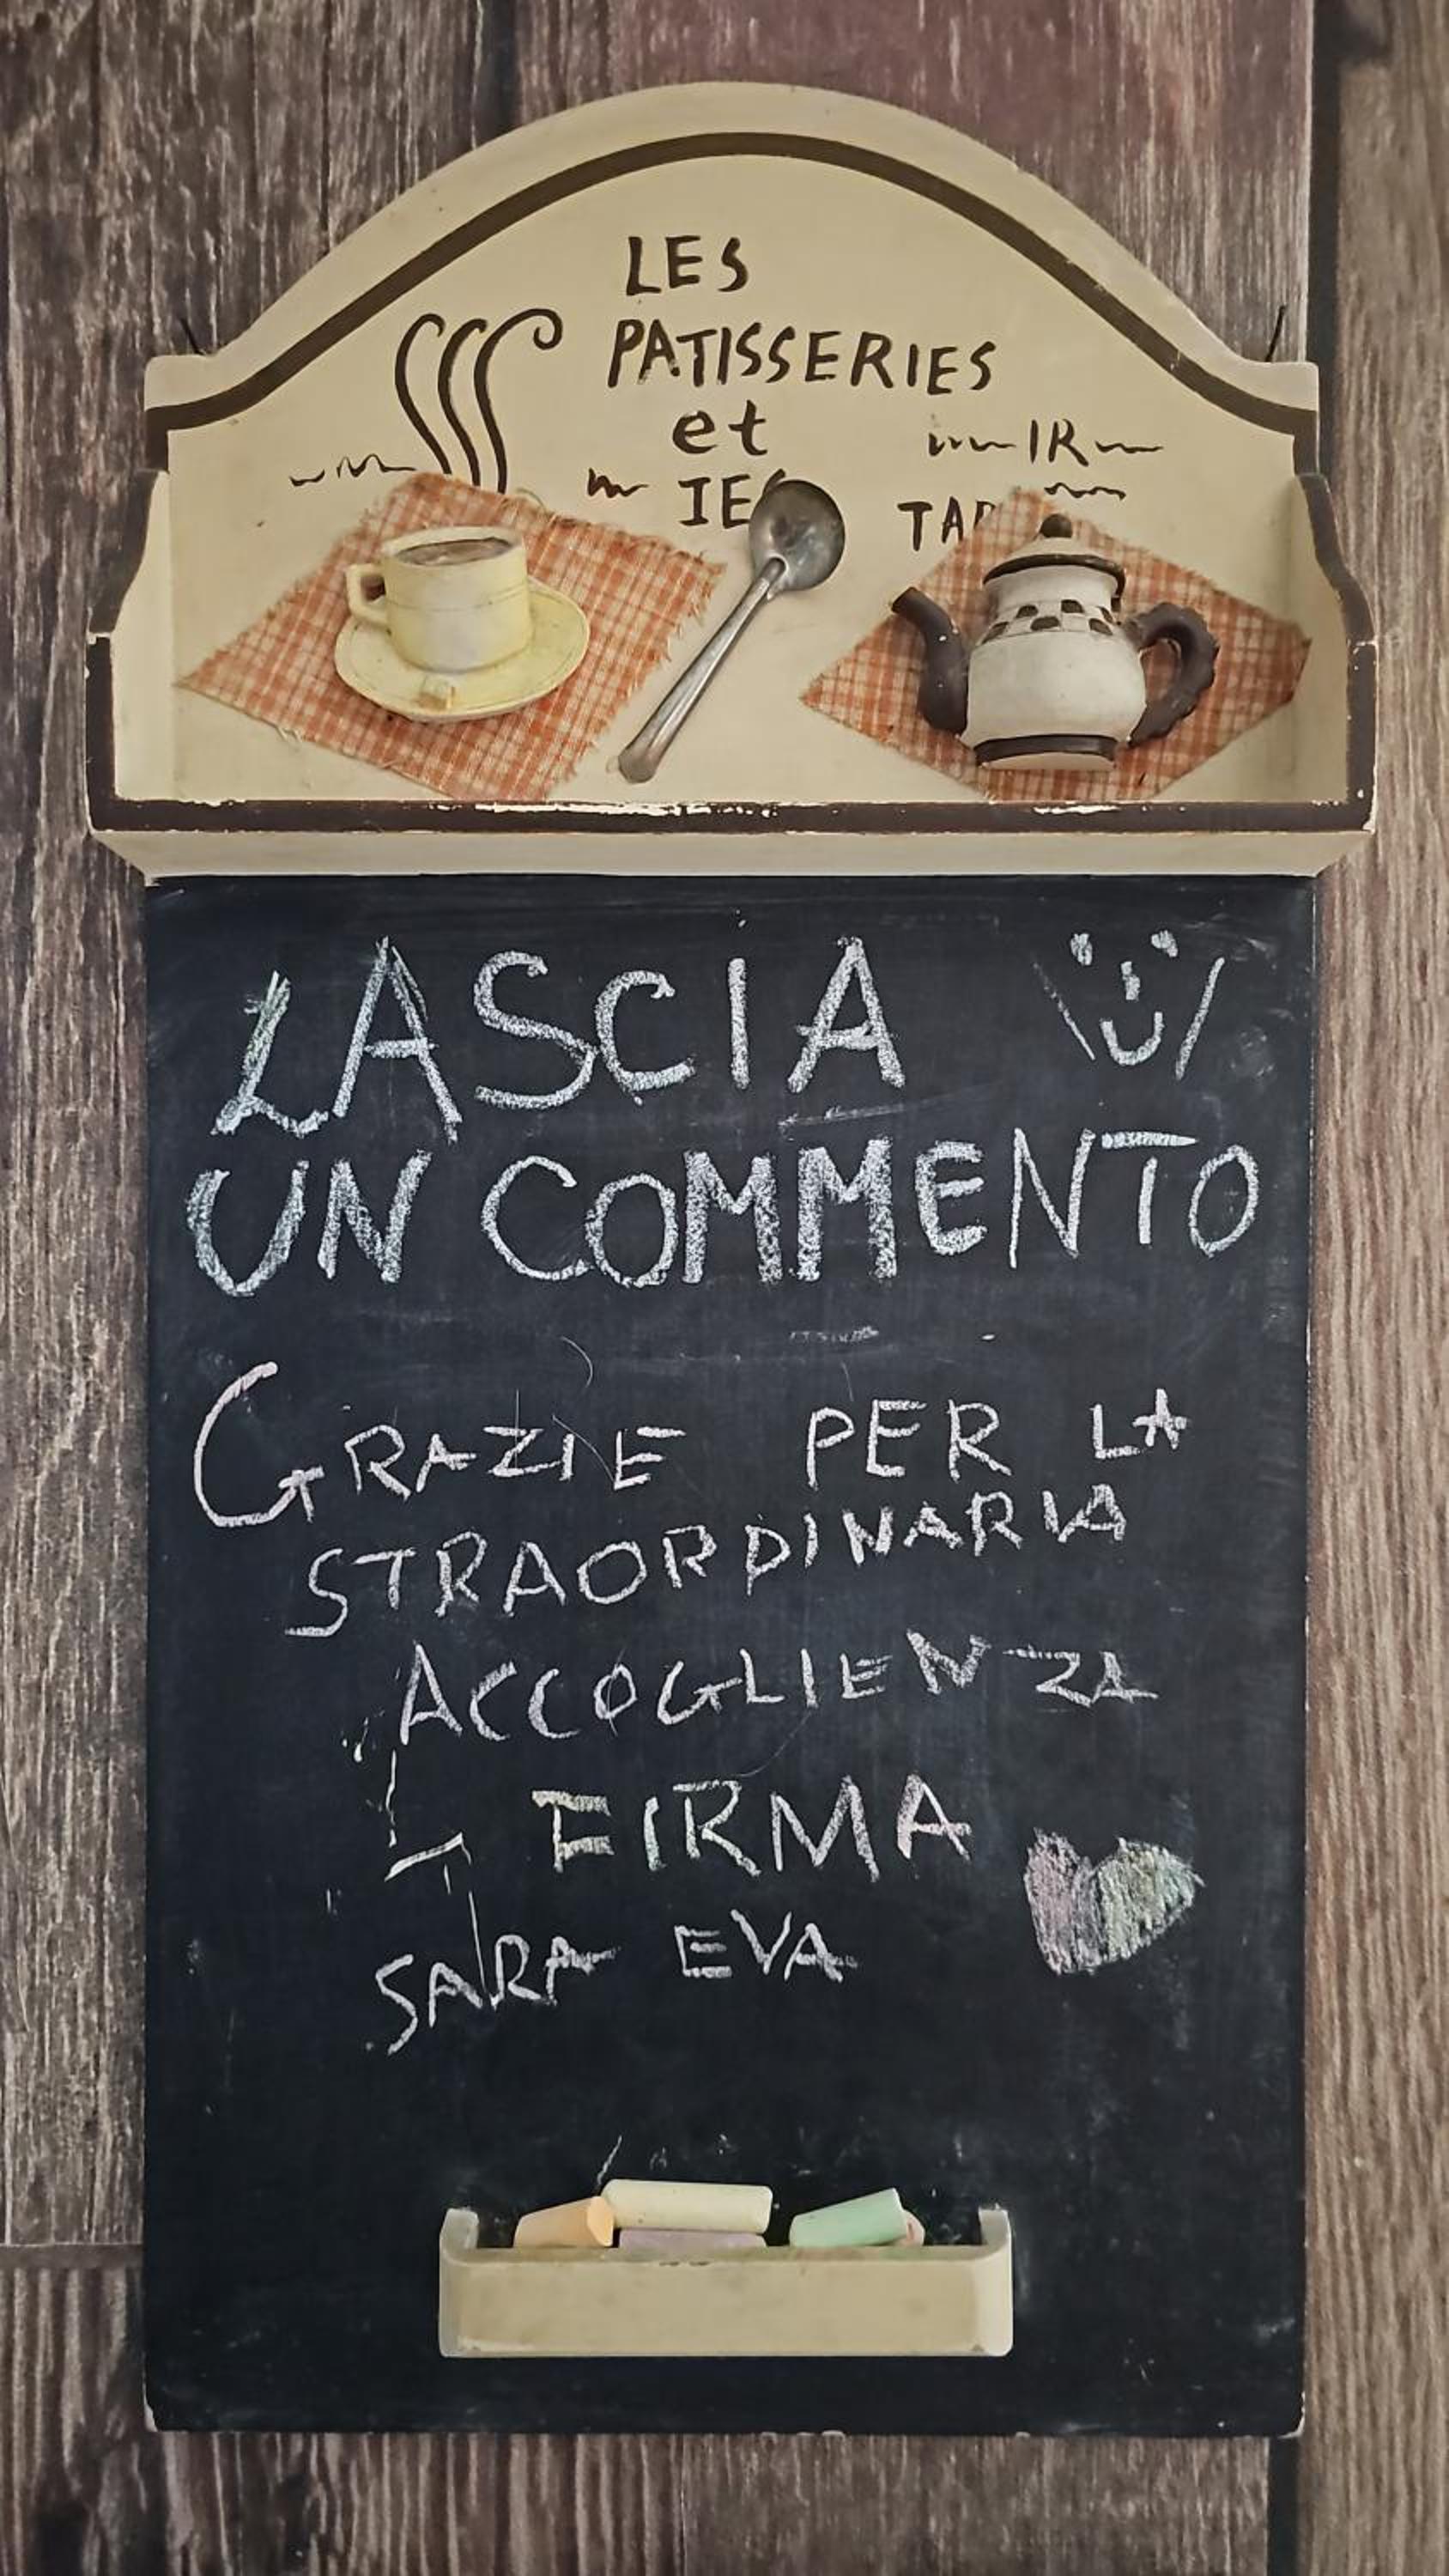 LES
PATISSERIES
et
IR
LASCIA
UN COMMENTO
GRAZIE PER LA
STRAORDINARIA
ACCOGLIENZA
FIRMA
SARA EVA